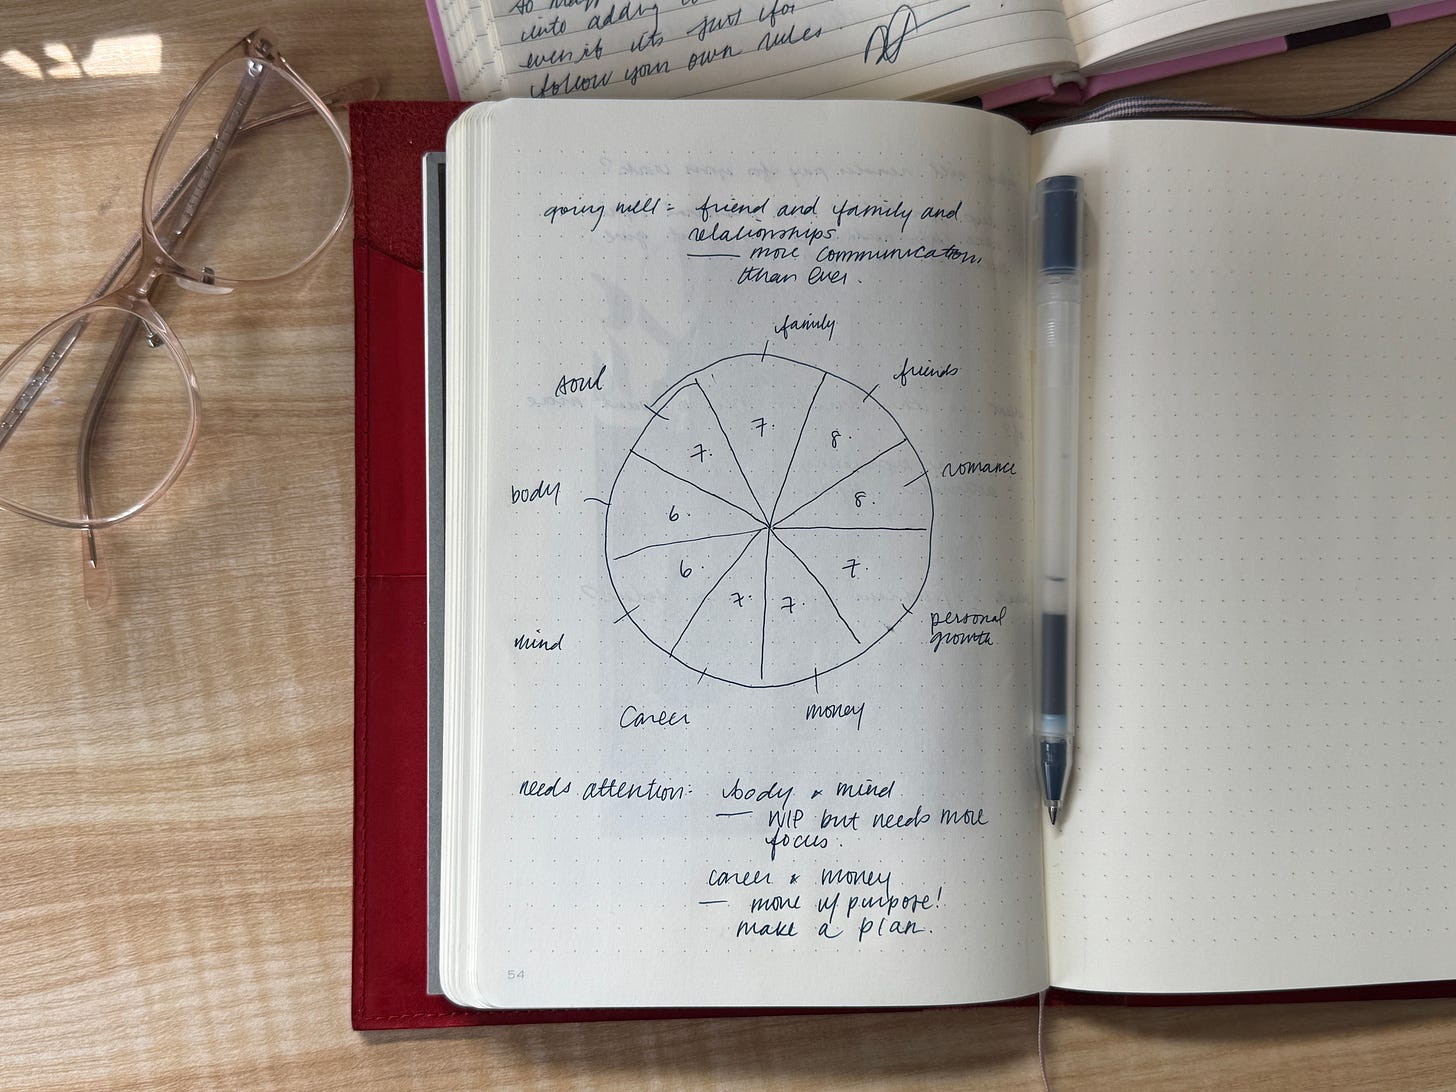 into adding
even if its just for
follow your own rules.
going well: friend and family and
relationships
— more communication
than ever.
family
friends
soul
7.
8.
7.
romance
body
8.
6.
6.
7.
7.
7.
personal
growth
mind
career
money
needs attention: body & mind
— WIP but needs more
focus.
career & money
— move w/ purpose!
make a plan.
54